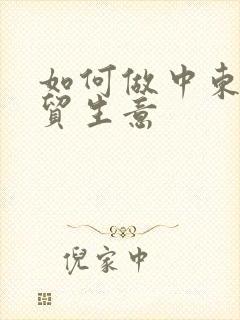 如何做中东
贸生意
倪家中